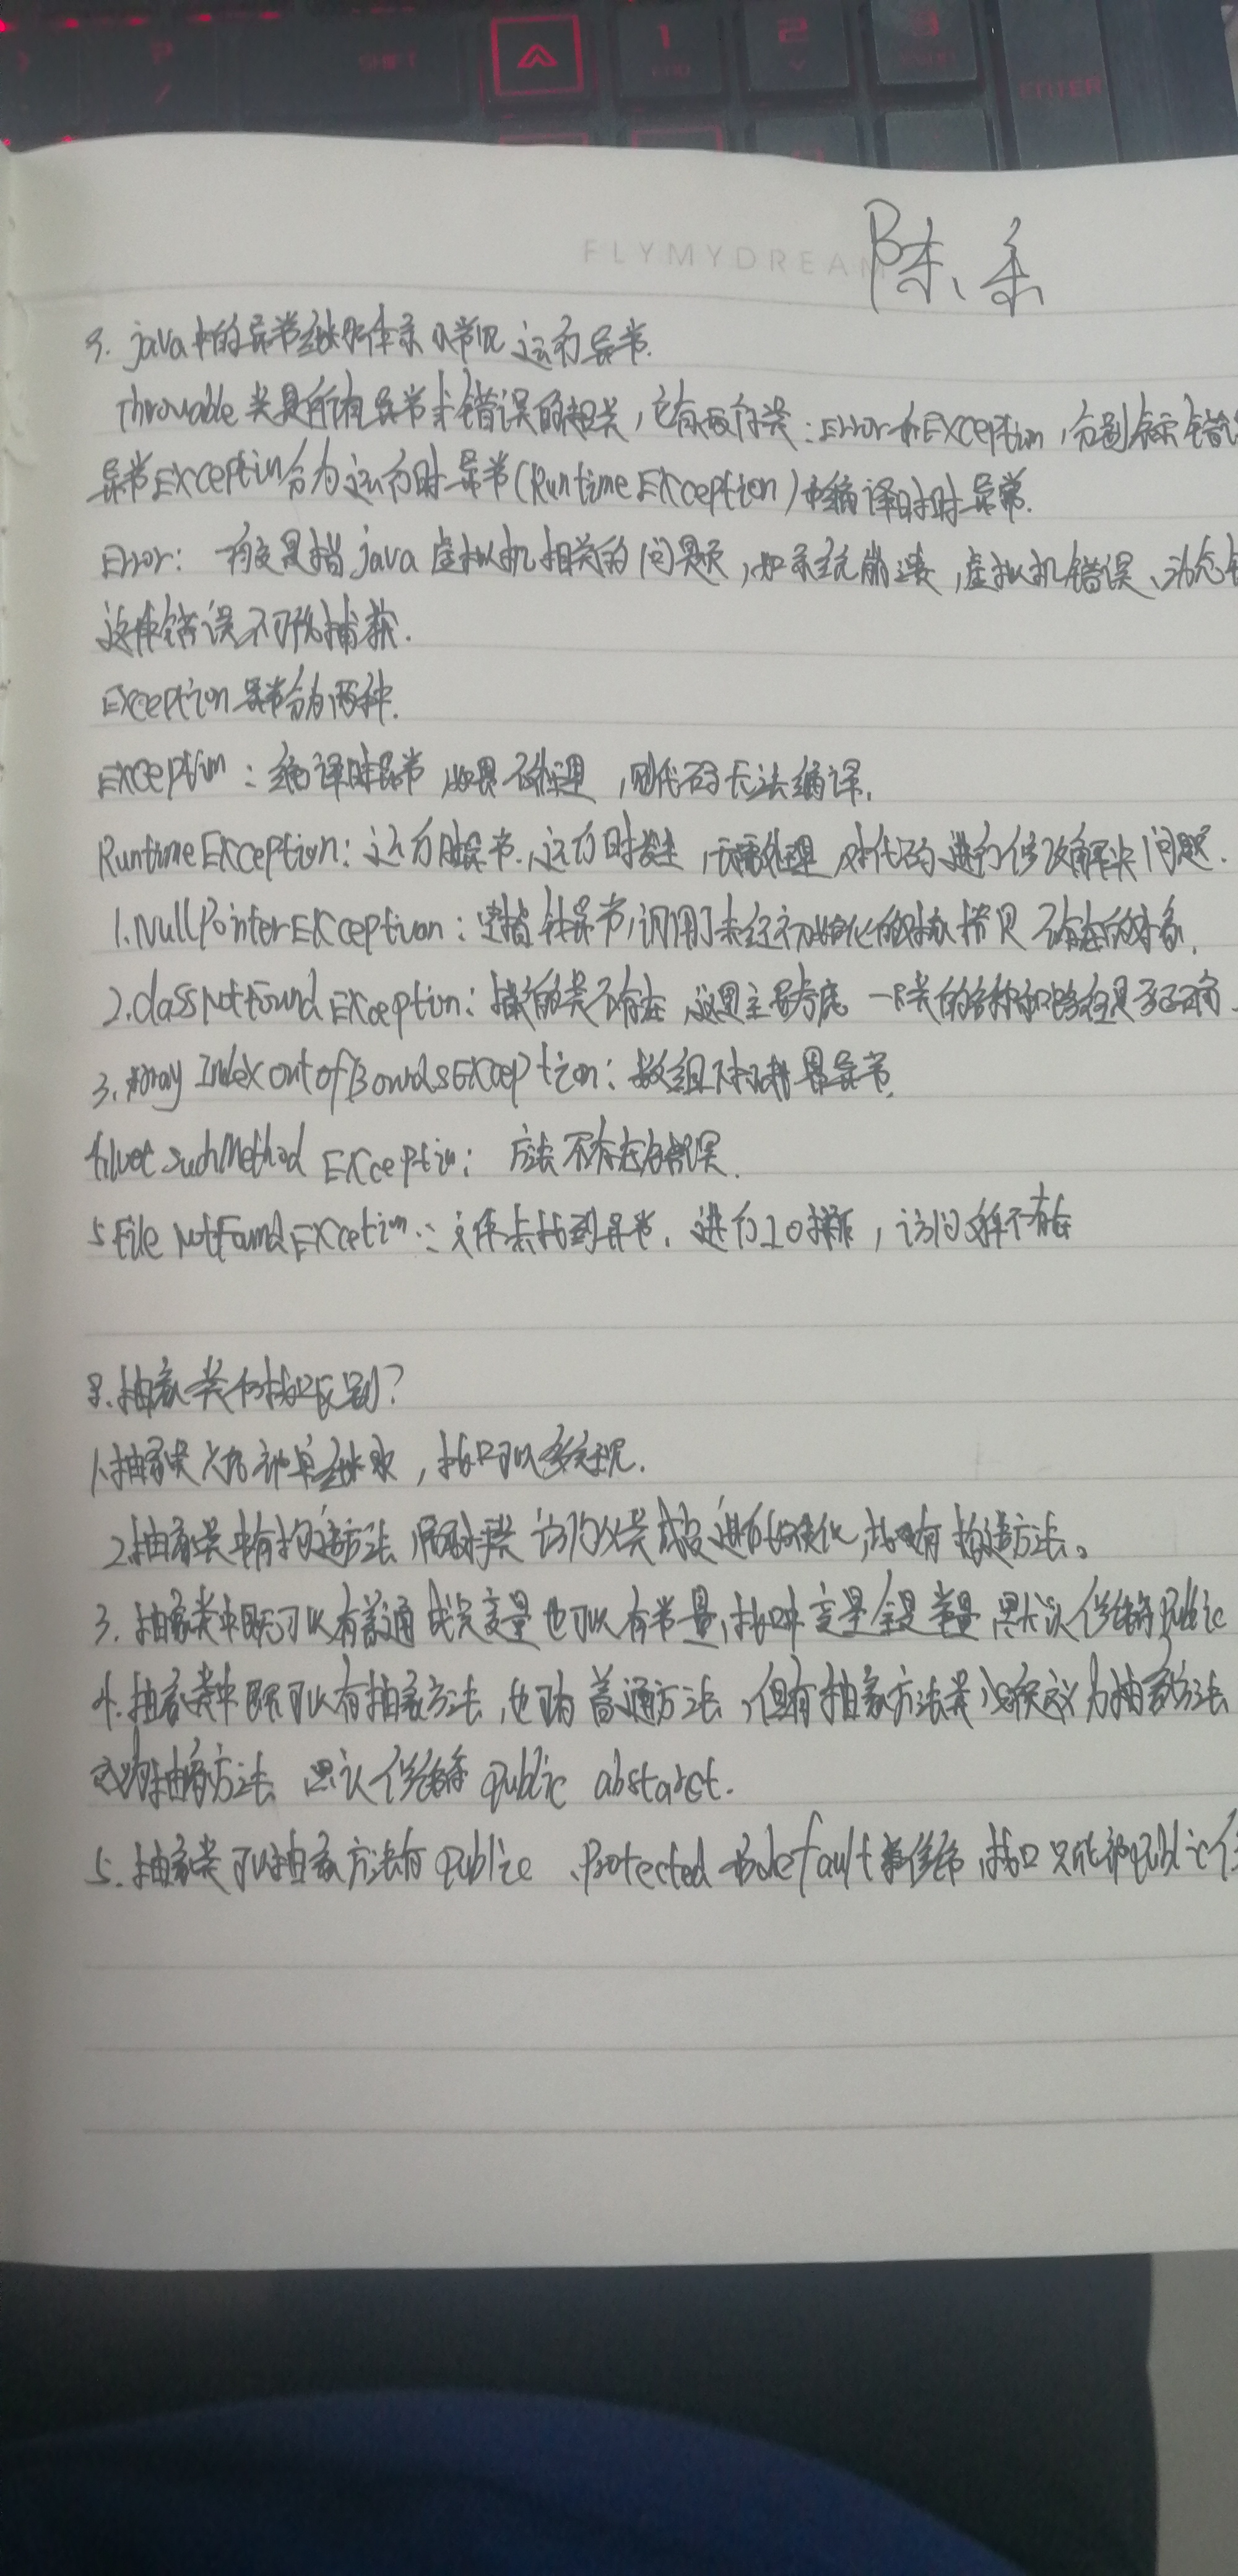 SHIFT 1 END 2 3 ENTER
FLYMYDREAM
陈
java中的异常继承体系及常见运行异常.
Throwable类是所有异常和错误的超类,它有两个子类:Error和Exception,分别表示错误
异常Exception分为运行时异常(RuntimeException)和编译时时异常.
Error: 一般是指java虚拟机相关的问题,如系统崩溃,虚拟机错误、动态
这种错误不可捕获.
Exception异常分为两种.
Exception:编译时异常,如果不处理,则代码无法编译.
RuntimeException:运行时异常,运行时发生,无需处理,对代码进行修改解决问题.
1.NullPointerException:空指针异常,调用了未经初始化的对象或是不存在的对象.
2.classNotFoundException:指定的类不存在,这里主要考虑一下类的名称和路径是否正确.
3.Array IndexoutofBoundsException:数组下标越界异常.
SuchMethod Exception:方法不存在错误.
5 File NotFoundExcetion:文件未找到异常,进行IO操作,访问文件不存在
8.抽象类和接口区别?
1.抽象类只能被单继承,接口可以多实现.
2.抽象类中有构造方法,用于子类访问父类成员进行初始化,接口没有构造方法。
3.抽象类中既可以有普通成员变量也可以有常量,接口中变量全是常量,默认修饰符public
4.抽象类中既可以有抽象方法,也可有普通方法,但有抽象方法类必须定义为抽象方法
抽象方法 默认修饰符 public abstarct.
5.抽象类可以抽象方法有public、Protected和default等修饰,接口只能被public